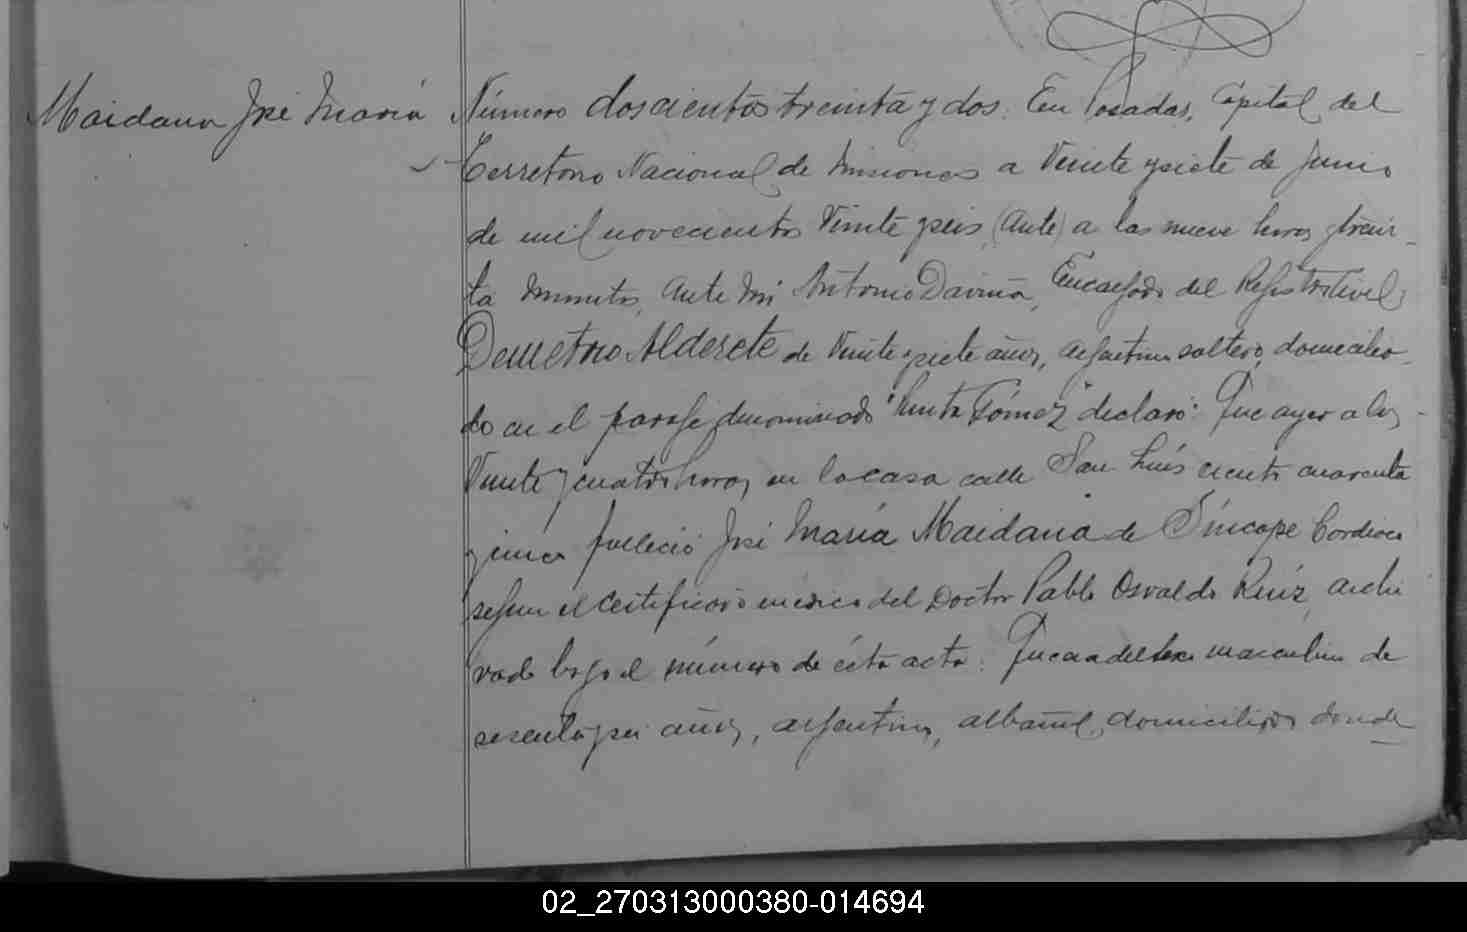 Maidana José María
Número doscientos treinta y dos. En Posadas, Capital del
Territorio Nacional de Misiones a Veinte y siete de Junio
de mil novecientos Veinte y seis, (ante) a las nueve horas y trein-
ta minutos, ante mí Antonio Daviña, Encargado del Registro Civil,
Demetrio Alderete de Veinte y siete años, argentino soltero, domicilia-
do en el paraje denominado "Punta Gómez" declaró: Que ayer a las
Veinte y cuatro horas, en la casa calle San Luís ciento cuarenta
y cinco falleció José María Maidana de Síncope Cardiaco
segun el certificado médico del Doctor Pablo Osvaldo Ruíz, archi
vado bajo el número de ésta acta. Que era del sexo masculino de
sesenta y seis años, argentino, albañil, domiciliado donde
02_270313000380-014694